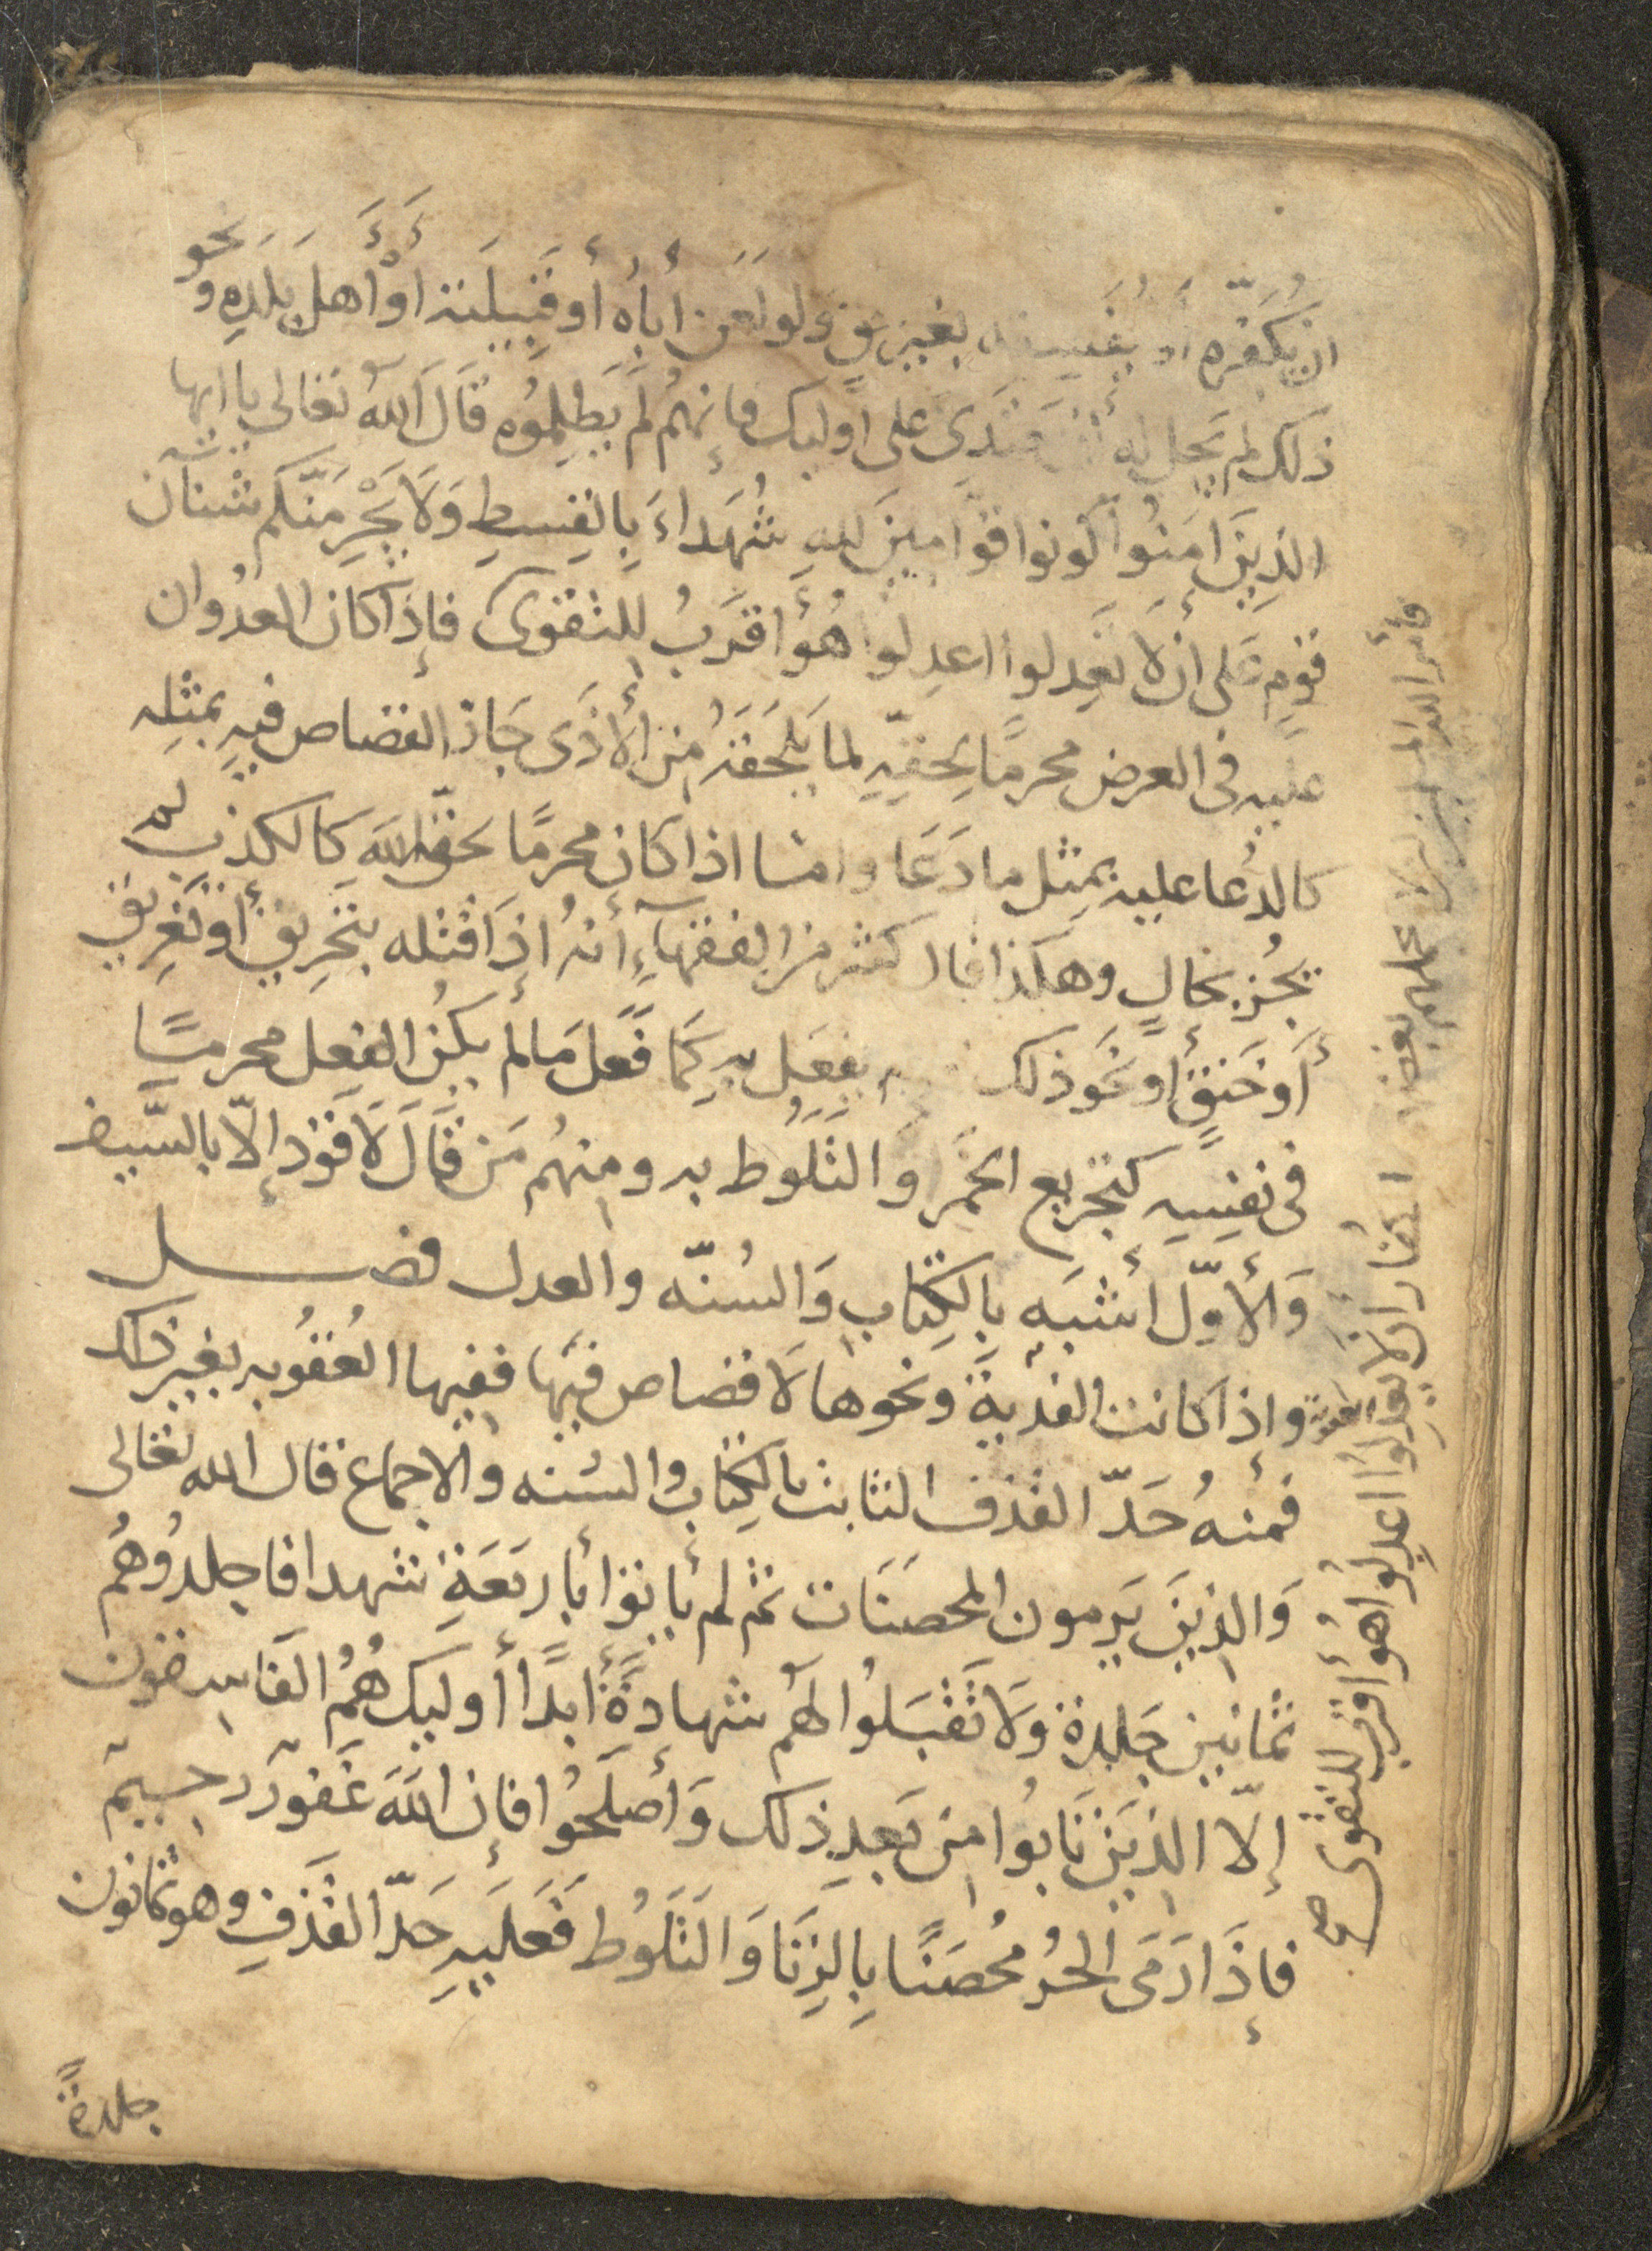 ان يُكَفِّره أو يُفَسِقه بغير حق ولو لعن أباه أو قَبيلَته أو أَهلَ بلدِه ونحو
ذلك لم يَحِل له أن يتعدى على أوليك فإنهُم لم يَظلِمُوه قَالَ اللهُ تعالى يا ايها
الذِينَ امَنُوا كونوا قوامينَ للهِ شُهَداءَ بِالقِسطِ وَلَا يَجْرِمَنَّكم شنآن
قومٍ عَلى ان لا تَعدِلوا اعدِلوا هُوَ أقرَبُ لِلتقوى فإذا كان العدُوان
عليه فى العرض محرمًا لحقِّهِ لما يَلحَقَهُ من الأذَى جَاز القصاص فيهِ بمثلِه
كالدُعا عليه بمثل ما دَعَا وامـا اذا كان محرمًا لحقِّ اللهَ كالكذبِ لم
يجُز بحالٍ وهكذا قال كثير من الفقهآءِ أنهُ إذَا قتله بتَحرِيقٍ أو تَغرِيقٍ
أَو خَنقٍ أو نَحو ذلك يفعَل به كَمَا فَعَلَ مَا لم يكُن الفِعل محرمـًا
فى نفسِهِ كتجريع الخَمر والتَلَوُط به ومِنهُم مَن قَالَ لَا قَوَد إلّا بالسَّيف
وَالأوّل أشبَه بِالكِتابِ وَالسُنّه والعدل فصــل
وإذا كانت الفريةَ ونحوها لَا قصاص فيَها ففيها العُقُوبه بغير ذلك
فمنهُ حَدّ القذف الثابت بالكِتابِ والسُنه والاجماع قال الله تعالى
وَالذِينَ يَرمون المحصَنَات ثم لم يأتوا بأربَعَةِ شهدا فاجلدُوهُم
ثمانين جَلدة وَلَا تَقبَلُوا لهُم شهادةً أبدًا أوليك هُمُ الفَاسِقون
إلّا الذِينَ تَابُوا مِن بَعدِ ذلك وَأصلَحُوا فإن اللهَ غَفورٌ رحيـمٌ
فإذَا رَمَى الحُرُ مُحصَنًا بِالزِنَا وَالتَلَوُط فَعَلَيهِ حَدّ القَذفِ وهو ثمانون
جلدةً
فأمر الله المسلمين ان لا يحملهم بغضهم
للكفار أن لا يَعدِلُوا اعدِلُوا هُوَ أقرَبُ للتقوى صح